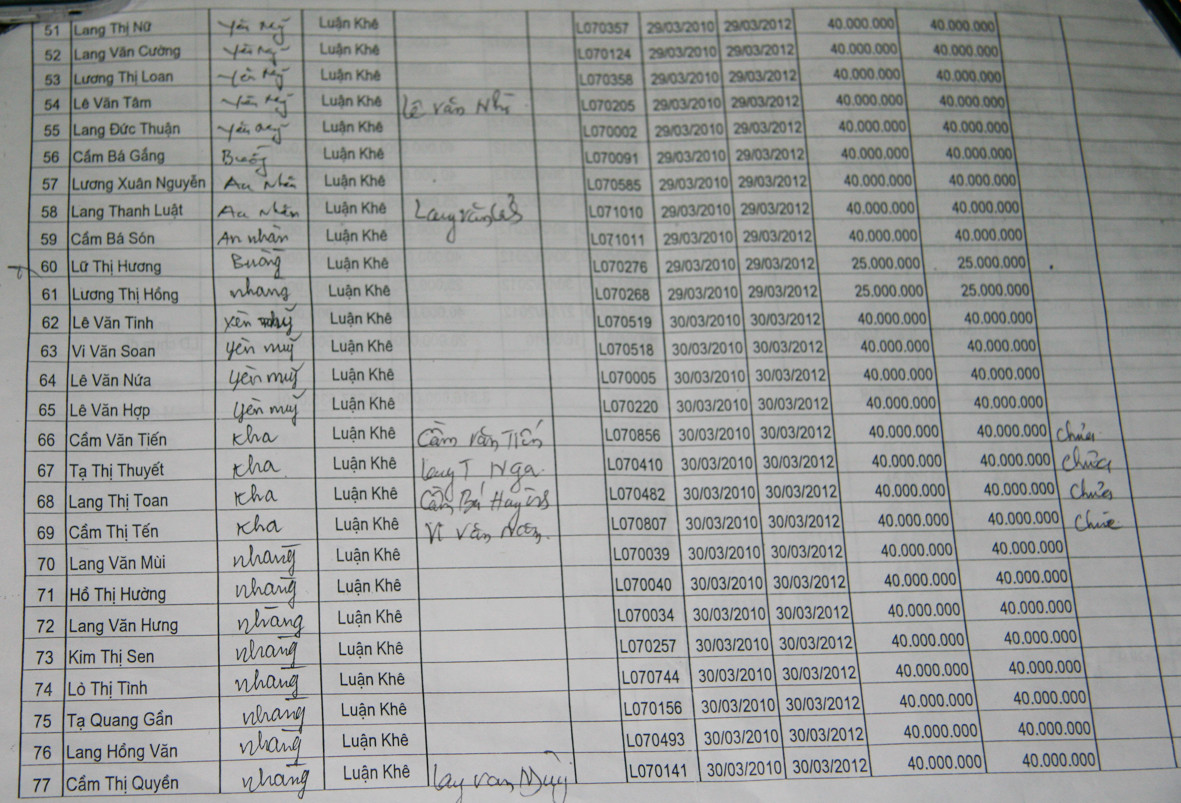 51 Lang Thị Nữ Yên Mỹ Luận Khê L070357 29/03/2010 29/03/2012 40.000.000 40.000.000
52 Lang Văn Cường Yên Mỹ Luận Khê L070124 29/03/2010 29/03/2012 40.000.000 40.000.000
53 Lương Thị Loan Yên Mỹ Luận Khê L070358 29/03/2010 29/03/2012 40.000.000 40.000.000
54 Lê Văn Tâm Yên Mỹ Luận Khê Lê Văn Nhì L070205 29/03/2010 29/03/2012 40.000.000 40.000.000
55 Lang Đức Thuận Yên Mỹ Luận Khê L070002 29/03/2010 29/03/2012 40.000.000 40.000.000
56 Cầm Bá Gắng Buồng Luận Khê L070091 29/03/2010 29/03/2012 40.000.000 40.000.000
57 Lương Xuân Nguyễn An Nhân Luận Khê L070585 29/03/2010 29/03/2012 40.000.000 40.000.000
58 Lang Thanh Luật An Nhân Luận Khê Lang văn L071010 29/03/2010 29/03/2012 40.000.000 40.000.000
59 Cầm Bá Són An nhân Luận Khê L071011 29/03/2010 29/03/2012 40.000.000 40.000.000
60 Lữ Thị Hương Buồng Luận Khê L070276 29/03/2010 29/03/2012 25.000.000 25.000.000
61 Lương Thị Hồng nhàng Luận Khê L070268 29/03/2010 29/03/2012 25.000.000 25.000.000
62 Lê Văn Tinh yên mỹ Luận Khê L070519 30/03/2010 30/03/2012 40.000.000 40.000.000
63 Vi Văn Soan yên muỹ Luận Khê L070518 30/03/2010 30/03/2012 40.000.000 40.000.000
64 Lê Văn Nứa yên muỹ Luận Khê L070005 30/03/2010 30/03/2012 40.000.000 40.000.000
65 Lê Văn Hợp yên muỹ Luận Khê L070220 30/03/2010 30/03/2012 40.000.000 40.000.000
66 Cầm Văn Tiến Kha Luận Khê Cầm Văn Tiến L070856 30/03/2010 30/03/2012 40.000.000 40.000.000 chưa
67 Tạ Thị Thuyết Kha Luận Khê Lang T Nga L070410 30/03/2010 30/03/2012 40.000.000 40.000.000 chưa
68 Lang Thị Toan Kha Luận Khê Cầm Bá L070482 30/03/2010 30/03/2012 40.000.000 40.000.000 chưa
69 Cầm Thị Tến Kha Luận Khê Vi Văn L070807 30/03/2010 30/03/2012 40.000.000 40.000.000 chưa
70 Lang Văn Mùi nhàng Luận Khê L070039 30/03/2010 30/03/2012 40.000.000 40.000.000
71 Hồ Thị Hường nhàng Luận Khê L070040 30/03/2010 30/03/2012 40.000.000 40.000.000
72 Lang Văn Hưng nhàng Luận Khê L070034 30/03/2010 30/03/2012 40.000.000 40.000.000
73 Kim Thị Sen nhàng Luận Khê L070257 30/03/2010 30/03/2012 40.000.000 40.000.000
74 Lò Thị Tình nhàng Luận Khê L070744 30/03/2010 30/03/2012 40.000.000 40.000.000
75 Tạ Quang Gần nhàng Luận Khê L070156 30/03/2010 30/03/2012 40.000.000 40.000.000
76 Lang Hồng Văn nhàng Luận Khê L070493 30/03/2010 30/03/2012 40.000.000 40.000.000
77 Cầm Thị Quyền nhàng Luận Khê L070141 30/03/2010 30/03/2012 40.000.000 40.000.000